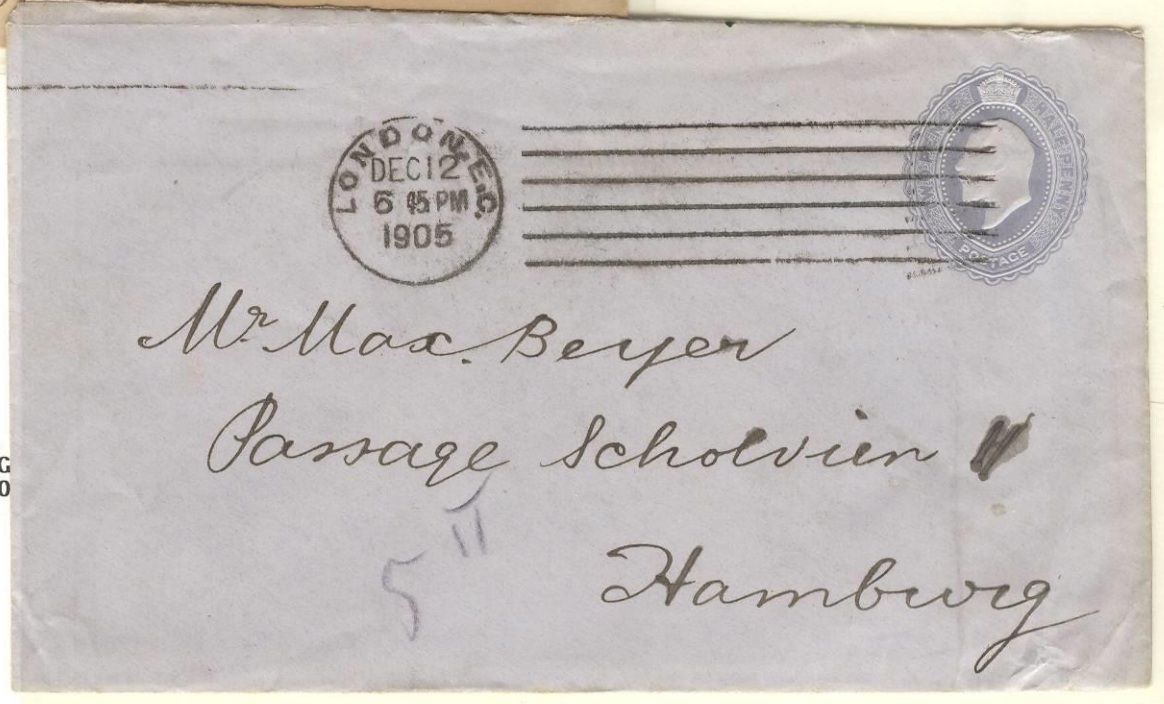 LONDON.E.C.
DEC 12
6 45 PM
1905
TWOPENCE HALFPENNY
POSTAGE
Mr. Max. Beyer
Passage Scholvien
5 II
Hamburg
G
0